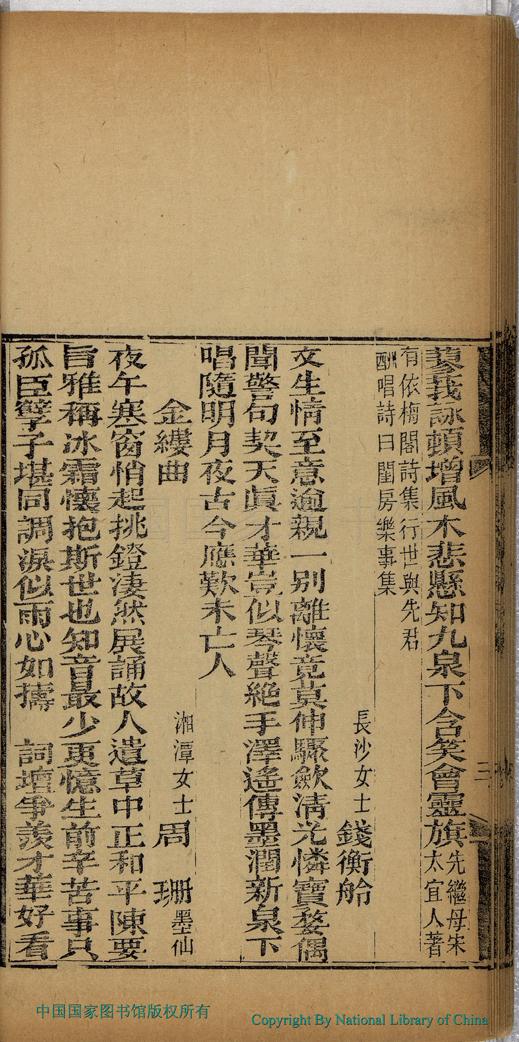 蓼莪詠頓增風木悲懸知九泉下含笑會靈旗先繼母宋太宜人著
有依梅閣詩集行世與先君
酬唱詩曰閨房樂事集
長沙女士錢衡舲
文生情至意逾親一别離懷竟莫伸驟歛清光憐寶婺偶
聞警句契天真才華豈似琴聲絕手澤遙傳墨潤新泉下
唱隨明月夜古今應歎未亡人
湘潭女士周珊墨仙
金縷曲
夜午寒窗悄起挑鐙淒然展誦故人遺草中正和平陳要
旨雅稱冰霜懷抱斯世也知音最少更憶生前辛苦事只
孤臣孽子堪同調淚似雨心如擣 詞壇爭羨才華好看
三
中国国家图书馆版权所有
Copyright By National Library of China